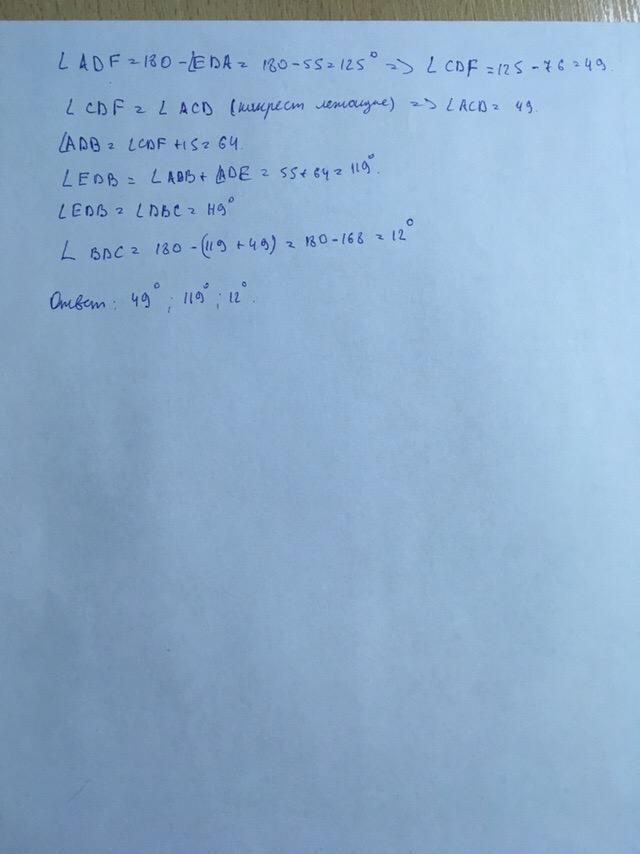 ∠ADF = 180 - ∠EDA = 180 - 55 = 125° => ∠CDF = 125 - 76 = 49.
∠CDF = ∠ACD (накрест лежащие) => ∠ACD = 49.
∠ADB = ∠CDF + 15 = 64.
∠EDB = ∠ADB + ∠ADE = 55 + 64 = 119°.
∠EDB = ∠DBC = 119°
∠BDC = 180 - (119 + 49) = 180 - 168 = 12°
Ответ: 49°; 119°; 12°.